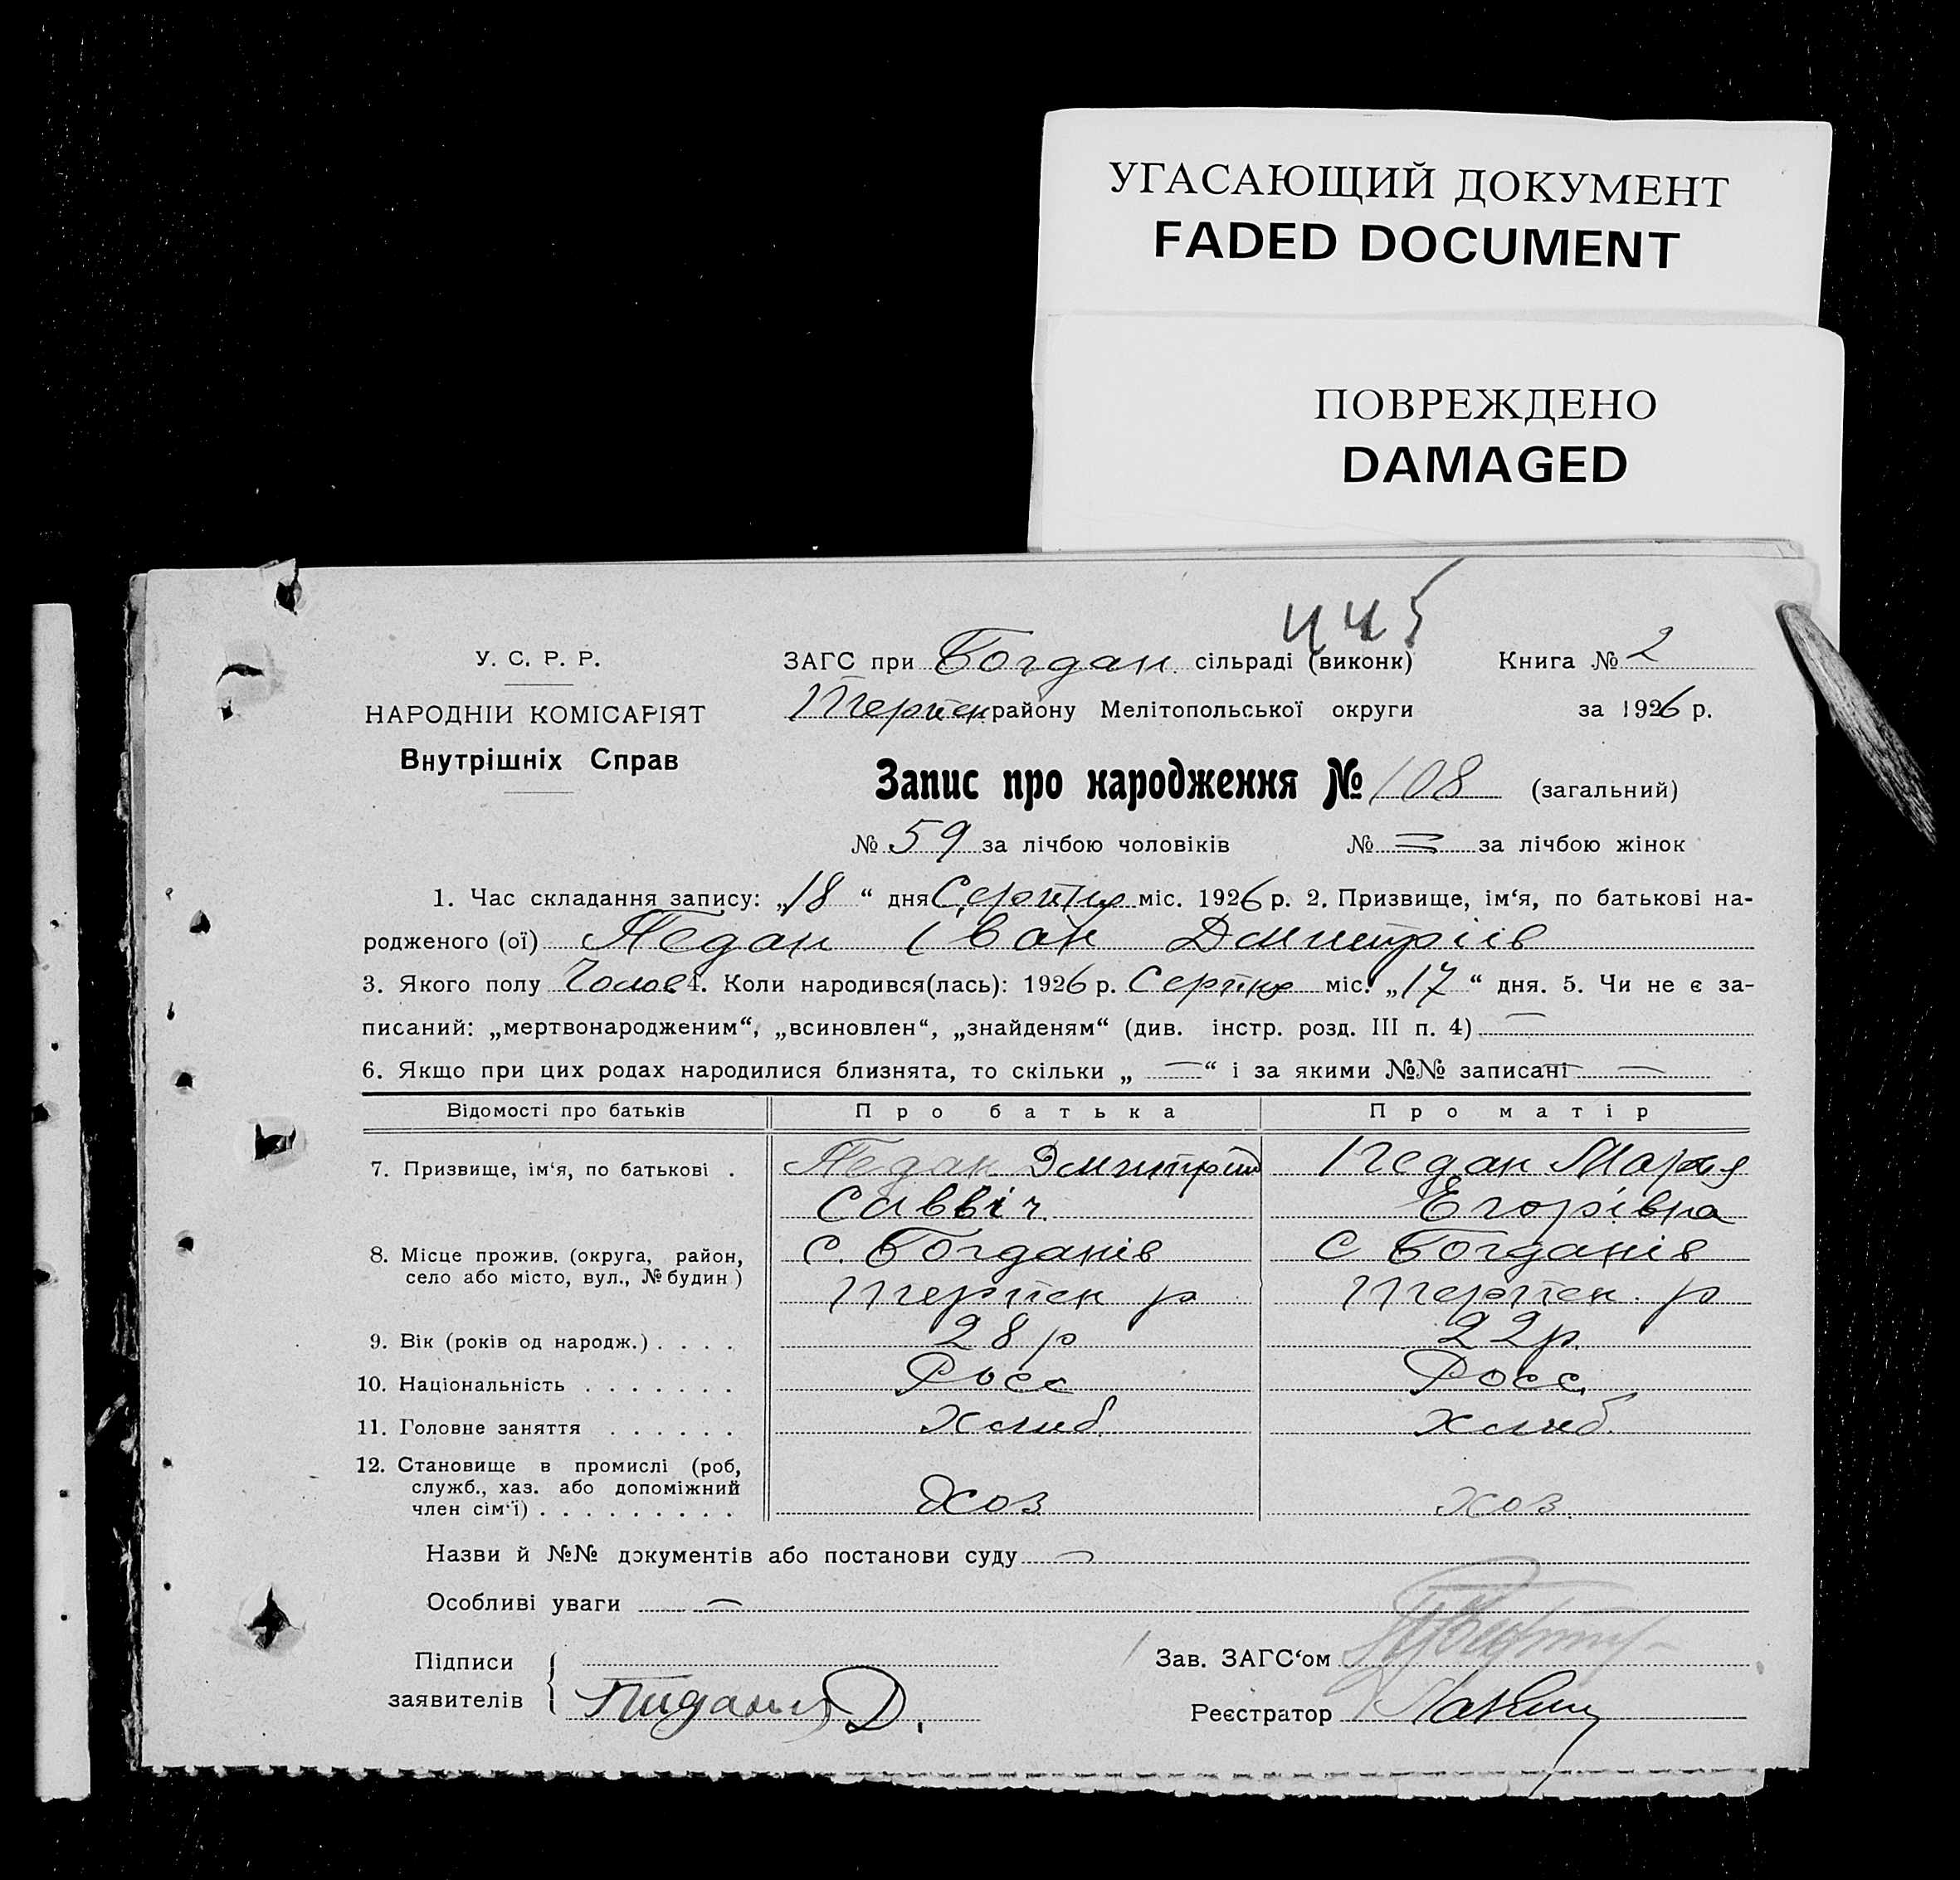 УГАСАЮЩИЙ ДОКУМЕНТ
FADED DOCUMENT
ПОВРЕЖДЕНО
DAMAGED
445
У. С. Р. Р.
НАРОДНІИ КОМІСАРІЯТ
Внутрішніх Справ
ЗАГС при Богдан. сільраді (виконк) Книга № 2
Терпен району Мелітопольської округи за 1926 р.
Запис про народження № 108 (загальний)
№ 59 за лічбою чоловіків № = за лічбою жінок
1. Час складання запису: „18“ дня Серпня міс. 1926 р. 2. Призвище, ім‘я, по батькові на-
родженого (ої) Педан Іван Дмитріів
3. Якого полу Чолов 4. Коли народився(лась): 1926 р. Серпня міс. „17“ дня. 5. Чи не є за-
писаний: „мертвонародженим“, „всиновлен“, „знайденям“ (див. інстр. розд. III п. 4) —
6. Якщо при цих родах народилися близнята, то скільки „ — “ і за якими №№ записані —
Відомості про батьків Про батька Про матір
7. Призвище, ім‘я, по батькові . Педан Дмитрій Педан Мария
Саввіч Егорівна
8. Місце прожив. (округа, район, С. Богданів С Богданів
село або місто, вул., № будин) Терпен р Терпен. р
9. Вік (років од народж.) . . . . 28 р 22 р.
10. Національність . . . . . . . Росс Росс.
11. Головне заняття . . . . . . Хлиб. Хлиб.
12. Становище в промислі (роб,
служб., хаз. або допоміжний
член сім‘ї) . . . . . . . . . Хоз хоз.
Назви й №№ документів або постанови суду —
Особливі уваги —
Підписи
заявителів Д.
Зав. ЗАГС‘ом
Реєстратор